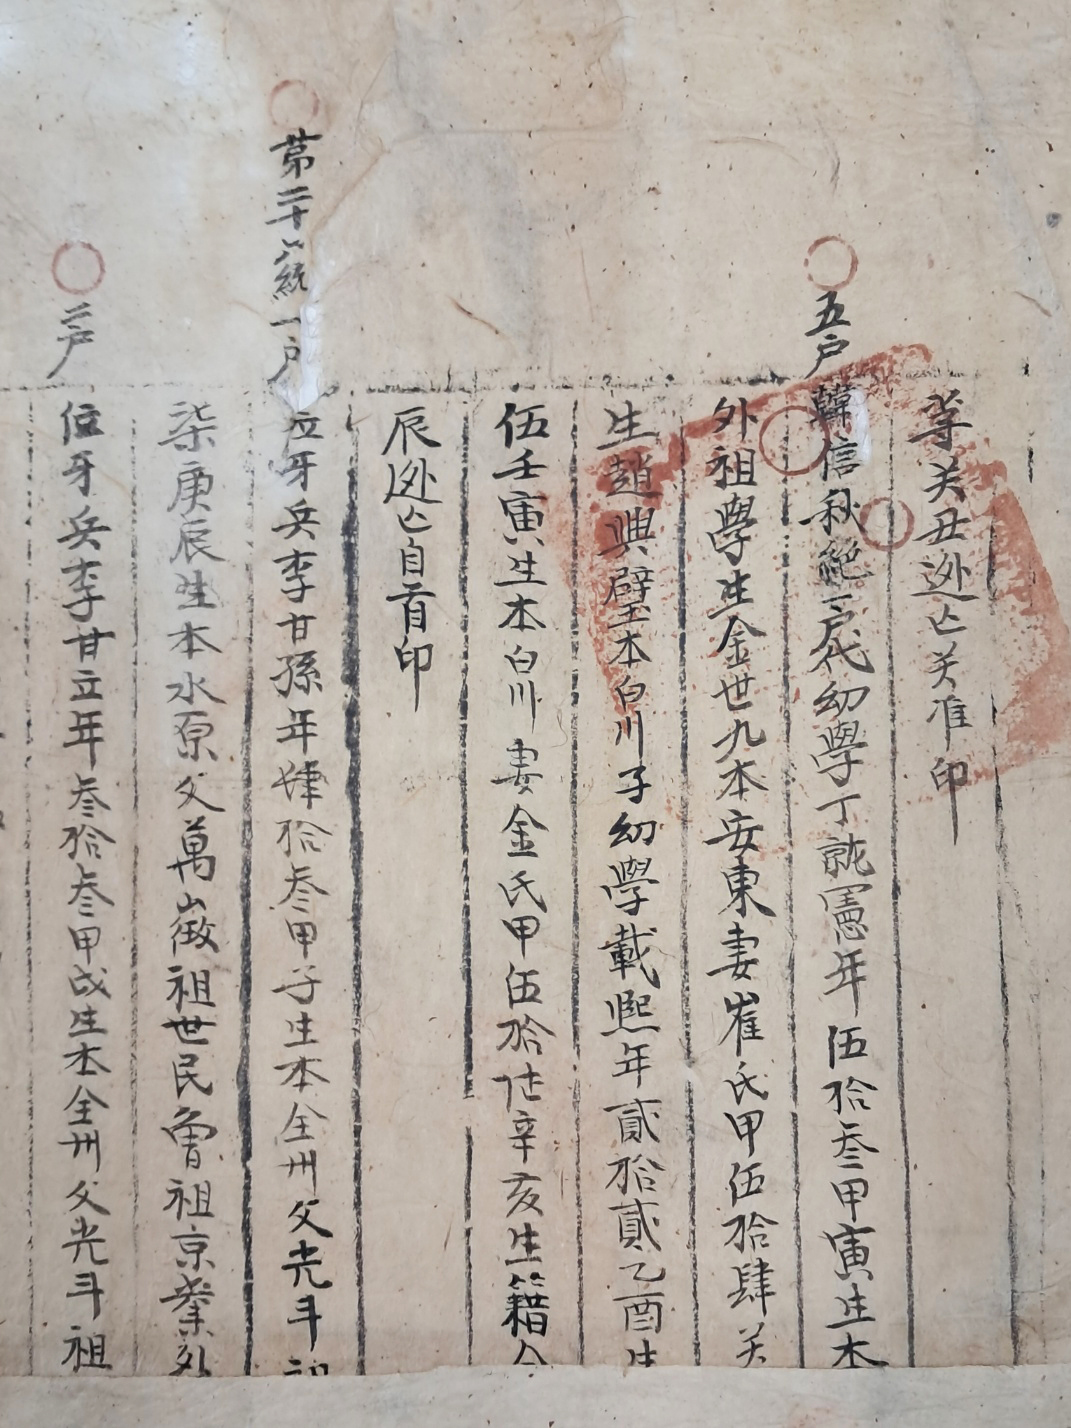 等癸丑逃亡关准印
五戶 韓信秋絶戶代幼學丁就憲年伍拾叁甲寅生本
外祖學生金世九本安東妻崔氏甲伍拾肆癸
生趙興璧本白川子幼學載熙年貳拾貳乙酉生
伍壬寅生本白川妻金氏甲伍拾陸辛亥生籍金
辰逃亡自首印
第二十六統一戶 位牙兵李甘孫年肆拾叁甲子生本全州父光斗祖
柒庚辰生本水原父萬徵祖世民曾祖京業外
二戶 位牙兵李甘立年叁拾叁甲戌生本全州父光斗祖